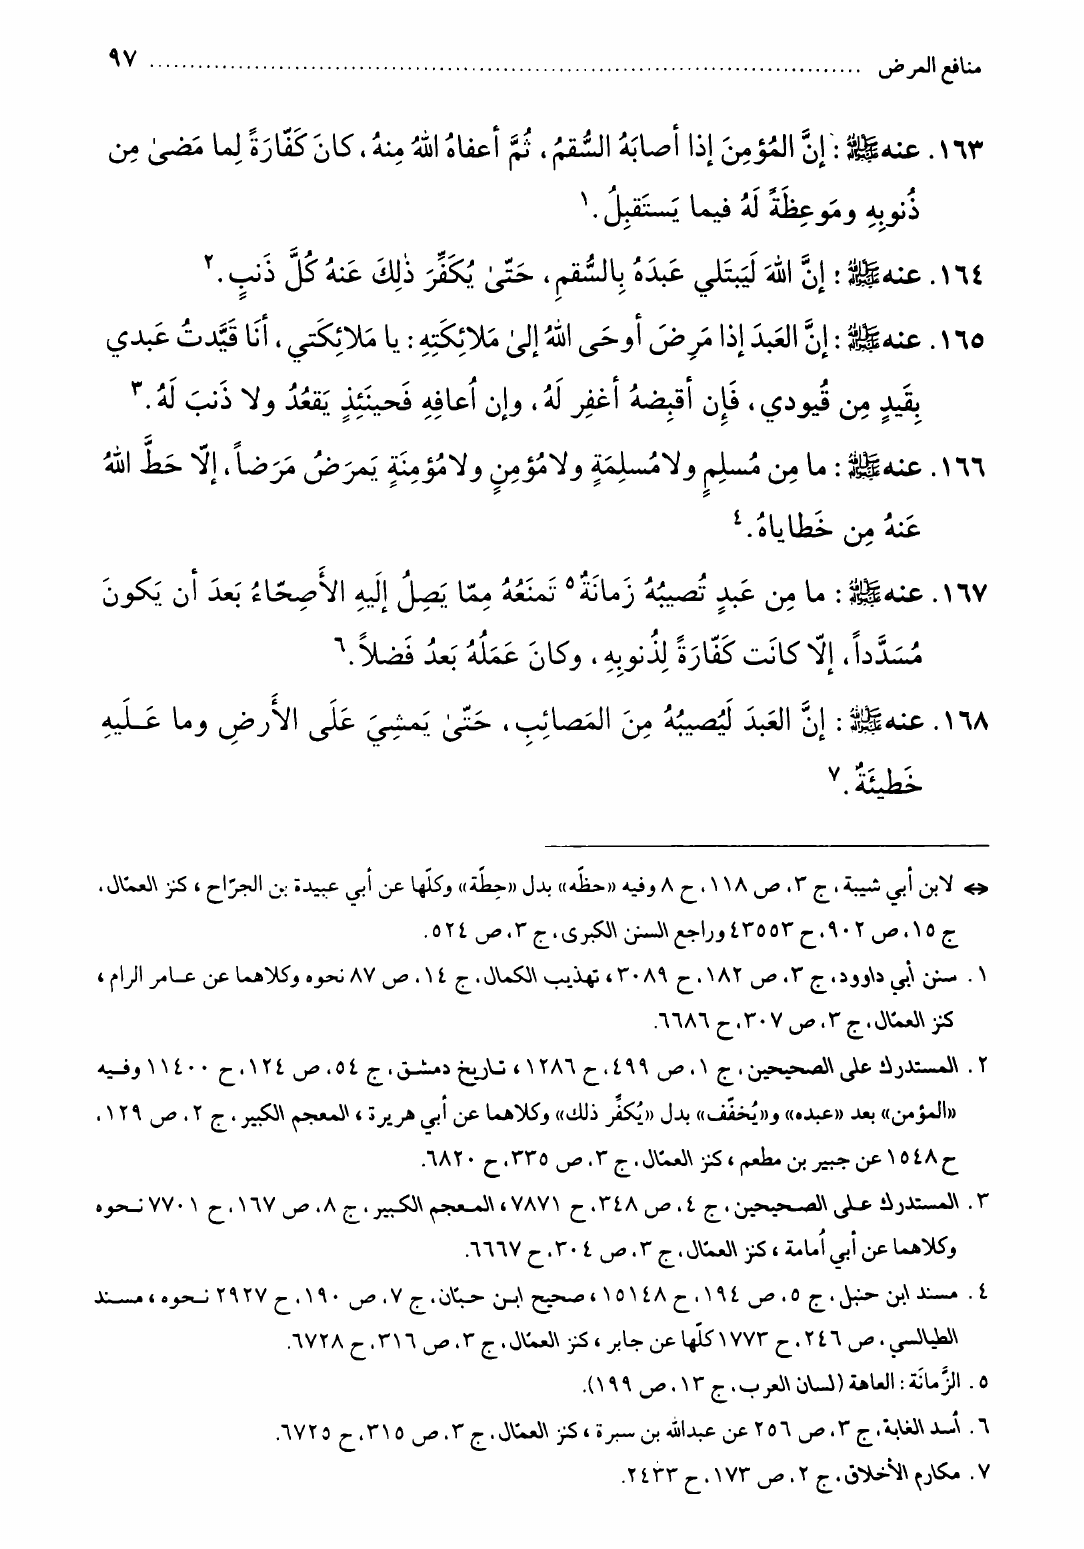 منافع المرض ........................................................................................ ٩٧
١٦٣. عنه ﷺ : إنَّ المُؤمِنَ إذا أصابَهُ السُّقمُ، ثُمَّ أعفاهُ اللهُ مِنهُ، كانَ كَفّارَةً لِما مَضىٰ مِن
ذُنوبِهِ ومَوعِظَةً لَهُ فيما يَستَقبِلُ.١
١٦٤. عنه ﷺ : إنَّ اللهَ لَيَبتَلي عَبدَهُ بِالسُّقمِ، حَتّىٰ يُكَفِّرَ ذٰلِكَ عَنهُ كُلَّ ذَنبٍ.٢
١٦٥. عنه ﷺ : إنَّ العَبدَ إذا مَرِضَ أوحَى اللهُ إلىٰ مَلائِكَتِهِ: يا مَلائِكَتي، أنَا قَيَّدتُ عَبدي
بِقَيدٍ مِن قُيودي، فَإِن أقبِضهُ أغفِر لَهُ، وإن اُعافِهِ فَحينَئِذٍ يَقعُدُ ولا ذَنبَ لَهُ.٣
١٦٦. عنه ﷺ : ما مِن مُسلِمٍ ولامُسلِمَةٍ ولامُؤمِنٍ ولامُؤمِنَةٍ يَمرَضُ مَرَضاً، إلّا حَطَّ اللهُ
عَنهُ مِن خَطاياهُ.٤
١٦٧. عنه ﷺ : ما مِن عَبدٍ تُصيبُهُ زَمانَةٌ٥ تَمنَعُهُ مِمّا يَصِلُ إلَيهِ الأَصِحّاءُ بَعدَ أن يَكونَ
مُسَدَّداً، إلّا كانَت كَفّارَةً لِذُنوبِهِ، وكانَ عَمَلُهُ بَعدُ فَضلاً.٦
١٦٨. عنه ﷺ : إنَّ العَبدَ لَيُصيبُهُ مِنَ المَصائِبِ، حَتّىٰ يَمشِيَ عَلَى الأَرضِ وما عَلَيهِ
خَطيئَةٌ.٧
⇔ لابن أبي شيبة، ج ٣، ص ١١٨، ح ٨ وفيه «حظّه» بدل «حِطّة» وكلّها عن أبي عبيدة بن الجرّاح، كنز العمّال،
ج ١٥، ص ٩٠٢، ح ٤٣٥٥٣ وراجع السنن الكبرى، ج ٣، ص ٥٢٤.
١. سنن أبي داوود، ج ٣، ص ١٨٢، ح ٣٠٨٩، تهذيب الكمال، ج ١٤، ص ٨٧ نحوه وكلاهما عن عامر الرام،
كنز العمّال، ج ٣، ص ٣٠٧، ح ٦٦٨٦.
٢. المستدرك على الصحيحين، ج ١، ص ٤٩٩، ح ١٢٨٦، تاريخ دمشق، ج ٥٤، ص ١٢٤، ح ١١٤٠٠ وفيه
«المؤمن» بعد «عبده» و«يُخفّف» بدل «يُكفِّر ذلك» وكلاهما عن أبي هريرة، المعجم الكبير، ج ٢، ص ١٢٩،
ح ١٥٤٨ عن جبير بن مطعم، كنز العمّال، ج ٣، ص ٣٣٥، ح ٦٨٢٠.
٣. المستدرك على الصحيحين، ج ٤، ص ٣٤٨، ح ٧٨٧١، المعجم الكبير، ج ٨، ص ١٦٧، ح ٧٧٠١ نحوه
وكلاهما عن أبي اُمامة، كنز العمّال، ج ٣، ص ٣٠٤، ح ٦٦٦٧.
٤. مسند ابن حنبل، ج ٥، ص ١٩٤، ح ١٥١٤٨، صحيح ابن حبّان، ج ٧، ص ١٩٠، ح ٢٩٢٧ نحوه، مسند
الطيالسي، ص ٢٤٦، ح ١٧٧٣ كلّها عن جابر، كنز العمّال، ج ٣، ص ٣١٦، ح ٦٧٢٨.
٥. الزَّمانَة: العاهة (لسان العرب، ج ١٣، ص ١٩٩).
٦. اُسد الغابة، ج ٣، ص ٢٥٦ عن عبدالله بن سبرة، كنز العمّال، ج ٣، ص ٣١٥، ح ٦٧٢٥.
٧. مكارم الأخلاق، ج ٢، ص ١٧٣، ح ٢٤٣٣.